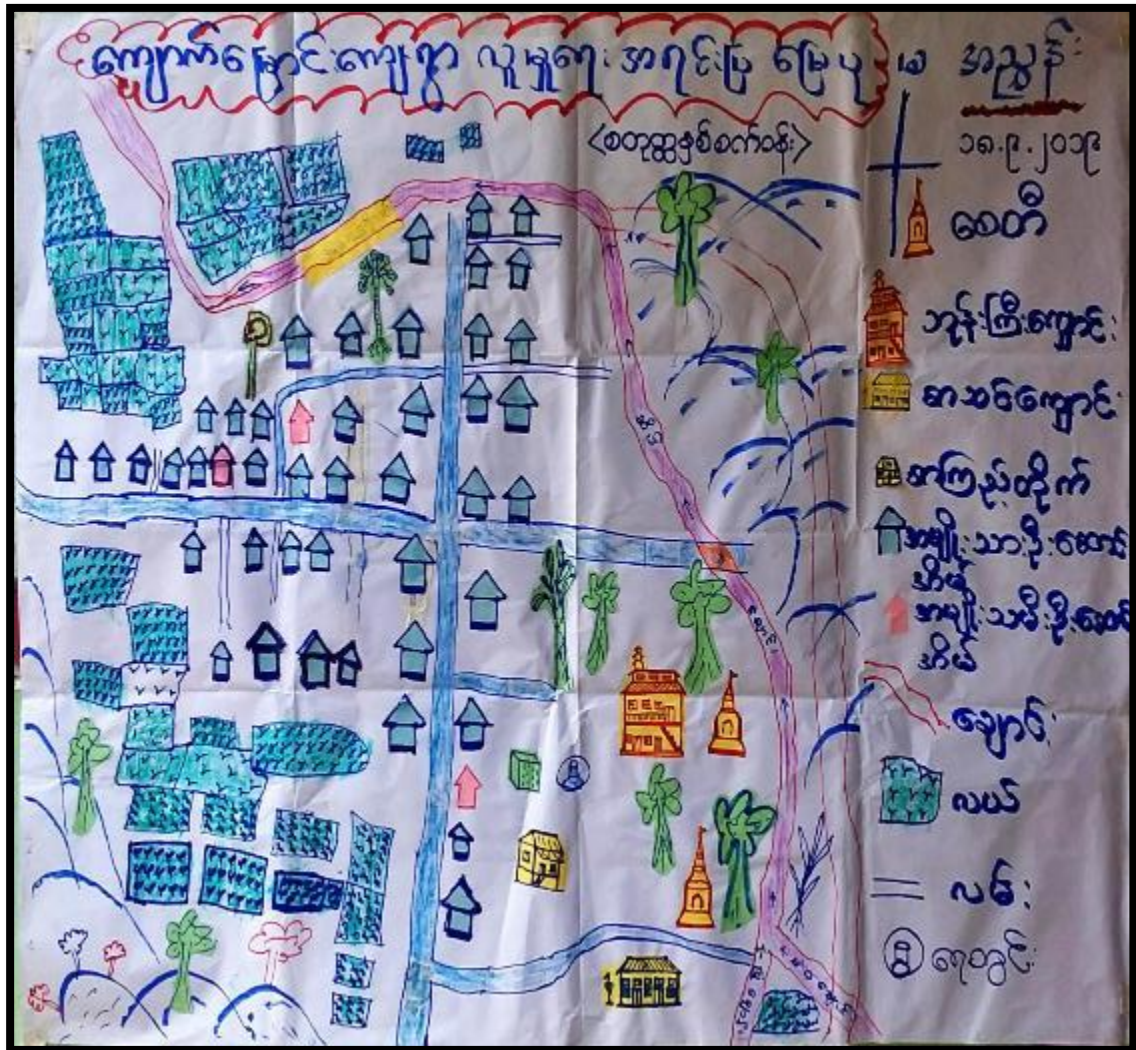 ကျောက်မြှောင်းကျေးရွာ လူမှုရေး အရင်းပြ မြေပုံ
<စတုတ္ထနှစ်စက်ဝန်း>
အညွှန်း
၁၈.၉.၂၀၁၉
စေတီ
ဘုန်းကြီးကျောင်း
စာသင်ကျောင်း
စာကြည့်တိုက်
အမျိုးသားဦးဆောင်
အိမ်
အမျိုးသမီးဦးဆောင်
အိမ်
ချောင်း
လယ်
လမ်း
ရေတွင်း